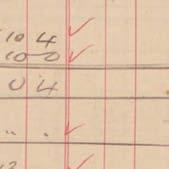 10 4 ✓
10 0 ✓
0 4
" . ✓